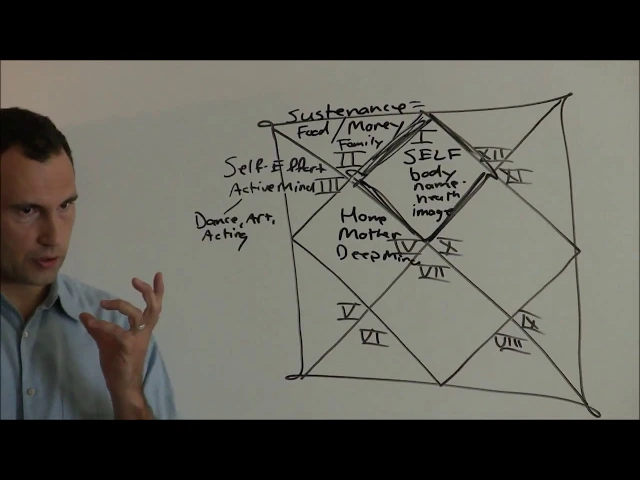 Sustenance =
Food / Money
Family
II
I
SELF
body
name
health
image
XII
XI
Self-Effort
Active Mind III
Dance, Art,
Acting
Home
Mother
Deep Mind
X
VII
V
VI
IX
VIII